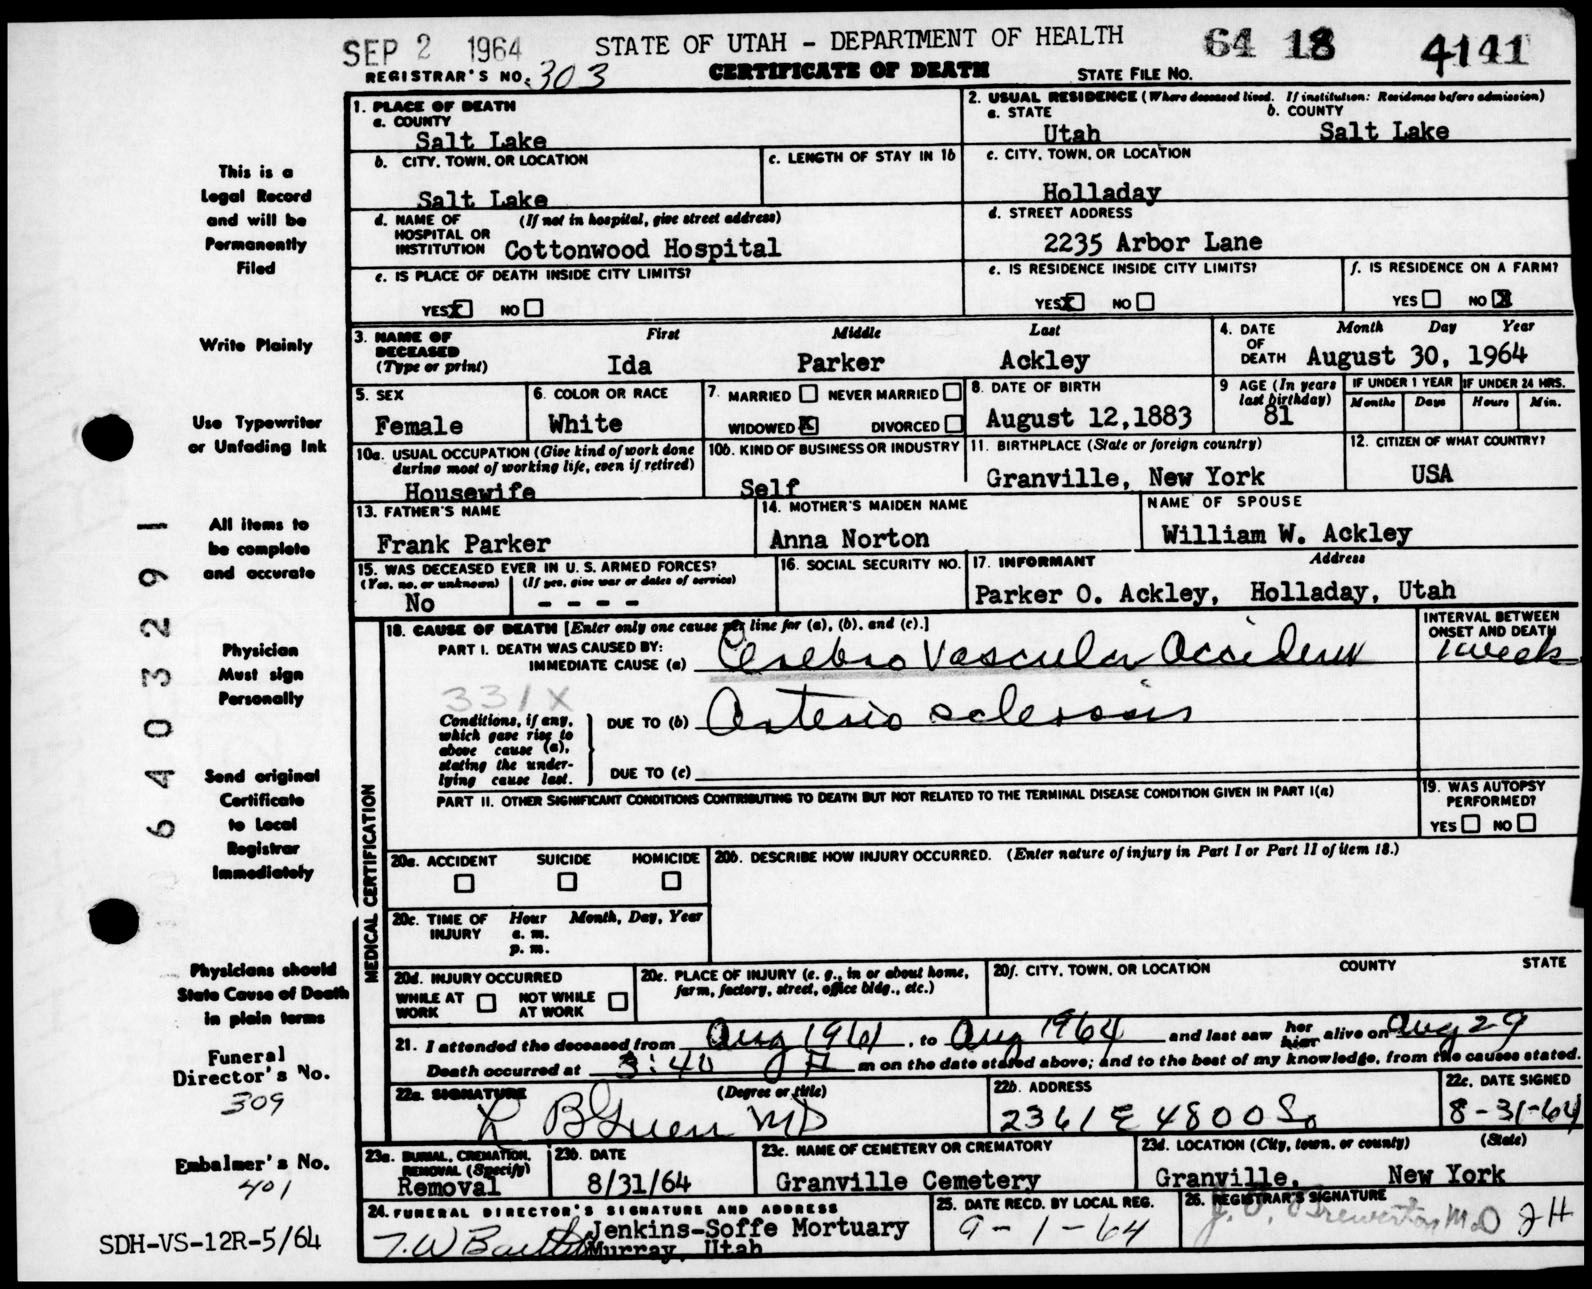 SEP 2 1964 STATE OF UTAH - DEPARTMENT OF HEALTH 64 18 4141
REGISTRAR'S NO. 303 CERTIFICATE OF DEATH STATE FILE NO.
1. PLACE OF DEATH
a. COUNTY
Salt Lake
2. USUAL RESIDENCE (Where deceased lived. If institution: Residence before admission)
a. STATE b. COUNTY
Utah Salt Lake
b. CITY, TOWN, OR LOCATION
Salt Lake
c. LENGTH OF STAY IN 1b
c. CITY, TOWN, OR LOCATION
Holladay
d. NAME OF (If not in hospital, give street address)
HOSPITAL OR
INSTITUTION Cottonwood Hospital
d. STREET ADDRESS
2235 Arbor Lane
e. IS PLACE OF DEATH INSIDE CITY LIMITS?
YES X NO
e. IS RESIDENCE INSIDE CITY LIMITS?
YES X NO
f. IS RESIDENCE ON A FARM?
YES NO X
3. NAME OF First Middle Last
DECEASED
(Type or print) Ida Parker Ackley
4. DATE Month Day Year
OF
DEATH August 30, 1964
5. SEX
Female
6. COLOR OR RACE
White
7. MARRIED NEVER MARRIED
WIDOWED X DIVORCED
8. DATE OF BIRTH
August 12,1883
9 AGE (In years
last birthday)
81
IF UNDER 1 YEAR
Months Days
IF UNDER 24 HRS.
Hours Min.
10a. USUAL OCCUPATION (Give kind of work done
during most of working life, even if retired)
Housewife
10b. KIND OF BUSINESS OR INDUSTRY
Self
11. BIRTHPLACE (State or foreign country)
Granville, New York
12. CITIZEN OF WHAT COUNTRY?
USA
13. FATHER'S NAME
Frank Parker
14. MOTHER'S MAIDEN NAME
Anna Norton
NAME OF SPOUSE
William W. Ackley
15. WAS DECEASED EVER IN U. S. ARMED FORCES?
(Yes, no, or unknown) (If yes, give war or dates of service)
No - - - -
16. SOCIAL SECURITY NO.
17. INFORMANT Address
Parker O. Ackley, Holladay, Utah
MEDICAL CERTIFICATION
18. CAUSE OF DEATH [Enter only one cause per line for (a), (b), and (c).]
INTERVAL BETWEEN
ONSET AND DEATH
PART I. DEATH WAS CAUSED BY:
IMMEDIATE CAUSE (a) Cerebro Vascular Accident 1 week
331X
Conditions, if any,
which gave rise to
above cause (a),
stating the under-
lying cause last.
DUE TO (b) Arterio sclerosis
DUE TO (c)
PART II. OTHER SIGNIFICANT CONDITIONS CONTRIBUTING TO DEATH BUT NOT RELATED TO THE TERMINAL DISEASE CONDITION GIVEN IN PART I(a)
19. WAS AUTOPSY
PERFORMED?
YES NO
20a. ACCIDENT SUICIDE HOMICIDE
20b. DESCRIBE HOW INJURY OCCURRED. (Enter nature of injury in Part I or Part II of item 18.)
20c. TIME OF Hour Month, Day, Year
INJURY a. m.
p. m.
20d. INJURY OCCURRED
WHILE AT NOT WHILE
WORK AT WORK
20e. PLACE OF INJURY (e. g., in or about home,
farm, factory, street, office bldg., etc.)
20f. CITY, TOWN, OR LOCATION COUNTY STATE
21. I attended the deceased from Aug 1961, to Aug 1964 and last saw her him alive on Aug 29
Death occurred at 3:40 A m on the date stated above; and to the best of my knowledge, from the causes stated.
22a. SIGNATURE (Degree or title)
L B Green MD
22b. ADDRESS
2361 E 4800 So
22c. DATE SIGNED
8-31-64
23a. BURIAL, CREMATION,
REMOVAL (Specify)
Removal
23b. DATE
8/31/64
23c. NAME OF CEMETERY OR CREMATORY
Granville Cemetery
23d. LOCATION (City, town, or county) (State)
Granville, New York
24. FUNERAL DIRECTOR'S SIGNATURE AND ADDRESS
Jenkins-Soffe Mortuary
Murray, Utah
25. DATE RECD. BY LOCAL REG.
9-1-64
26. REGISTRAR'S SIGNATURE
M.D JH
This is a
Legal Record
and will be
Permanently
Filed
Write Plainly
Use Typewriter
or Unfading Ink
All items to
be complete
and accurate
Physician
Must sign
Personally
Send original
Certificate
to Local
Registrar
Immediately
Physicians should
State Cause of Death
in plain terms
Funeral
Director's No.
309
Embalmer's No.
401
SDH-VS-12R-5/64
6403291